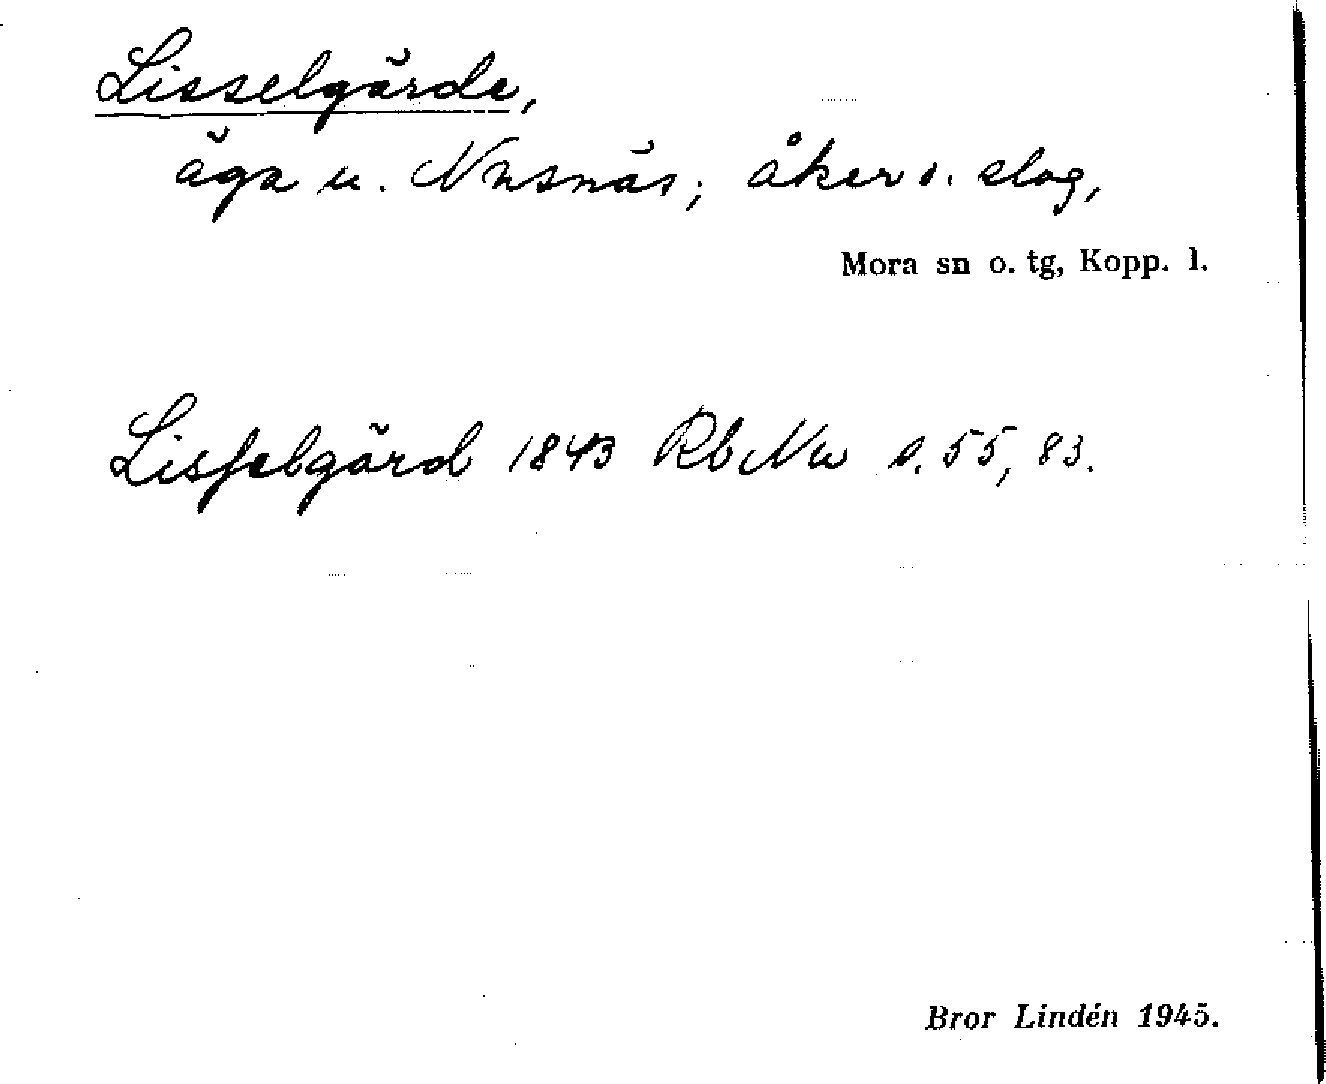 Lisselgärde,
äga u. Nusnäs; åker o. slog,
Mora sn o. tg, Kopp. l.
Lisselgärd 1843 Rb Nu s. 55, 83.
Bror Lindén 1945.